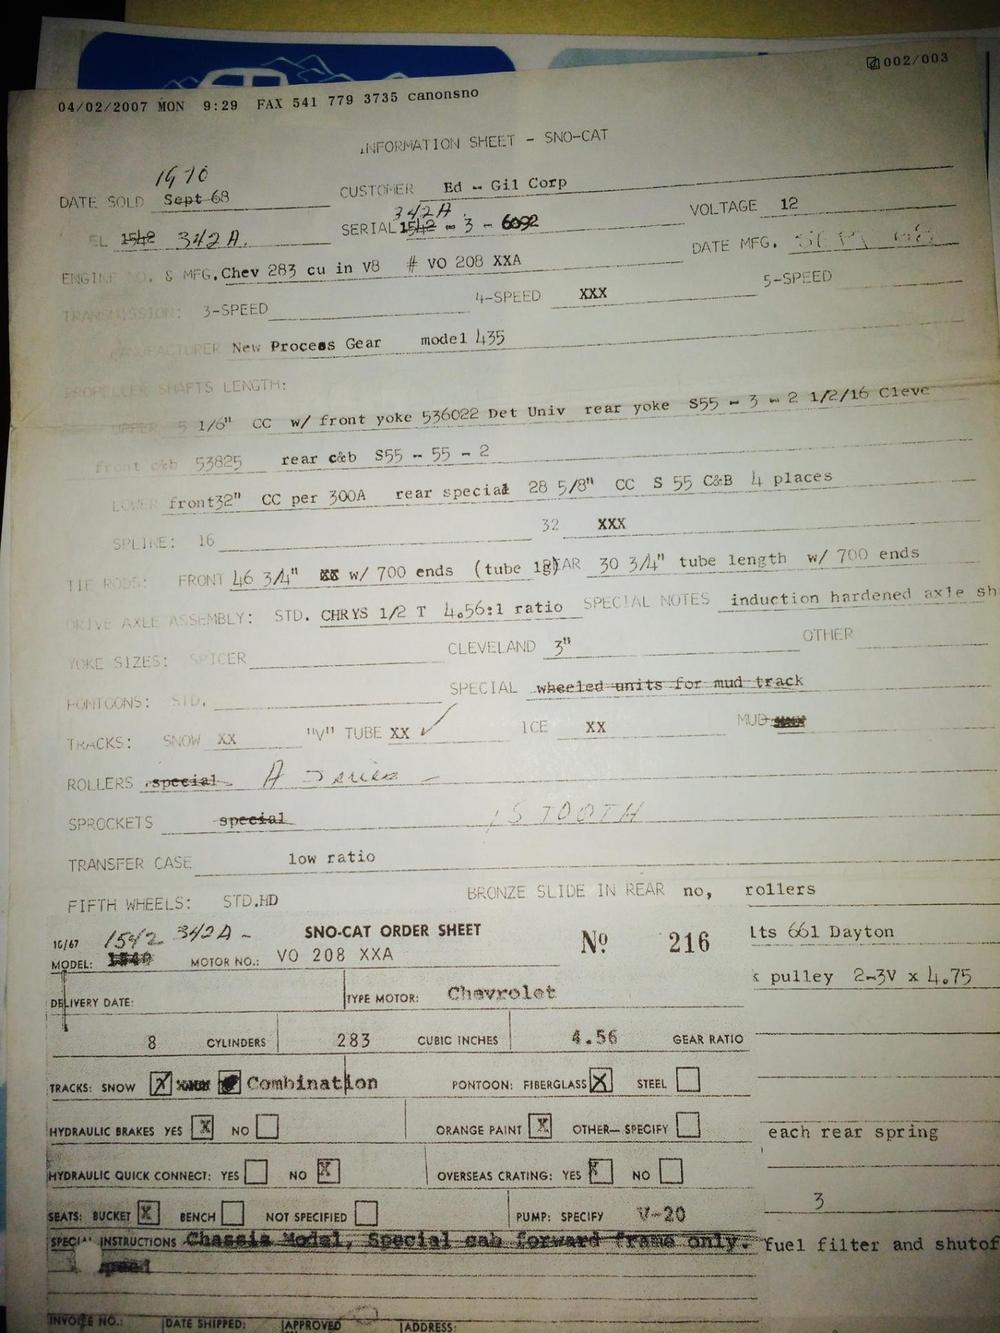 04/02/2007 MON 9:29 FAX 541 779 3735 canonsno 002/003
INFORMATION SHEET - SNO-CAT
1970
DATE SOLD Sept 68 CUSTOMER Ed - Gil Corp
342A.
EL 1542 342A. SERIAL 1542 - 3 - 6092 VOLTAGE 12
DATE MFG.
ENGINE NO. & MFG. Chev 283 cu in V8 # VO 208 XXA
TRANSMISSION: 3-SPEED 4-SPEED XXX 5-SPEED
MANUFACTURER New Process Gear model 435
PROPELLER SHAFTS LENGTH:
UPPER 5 1/6" CC w/ front yoke 536022 Det Univ rear yoke S55 - 3 - 2 1/2/16 Cleve
front c&b 53825 rear c&b S55 - 55 - 2
LOWER front32" CC per 300A rear special 28 5/8" CC S 55 C&B 4 places
SPLINE: 16 32 XXX
TIE RODS: FRONT 46 3/4" XX w/ 700 ends (tube lg) EAR 30 3/4" tube length w/ 700 ends
DRIVE AXLE ASSEMBLY: STD. CHRYS 1/2 T 4.56:1 ratio SPECIAL NOTES induction hardened axle sh
YOKE SIZES: SPICER CLEVELAND 3" OTHER
PONTOONS: STD. SPECIAL wheeled units for mud track
TRACKS: SNOW XX "V" TUBE XX ✓ ICE XX MUD
ROLLERS special A Series -
SPROCKETS special 15 TOOTH
TRANSFER CASE low ratio
FIFTH WHEELS: STD.HD BRONZE SLIDE IN REAR no, rollers
10/67 1542 342A - SNO-CAT ORDER SHEET No 216 lts 661 Dayton
MODEL: 1540 MOTOR NO.: VO 208 XXA
k pulley 2-3V x 4.75
DELIVERY DATE: TYPE MOTOR: Chevrolet
8 CYLINDERS 283 CUBIC INCHES 4.56 GEAR RATIO
TRACKS: SNOW X Combination PONTOON: FIBERGLASS X STEEL
HYDRAULIC BRAKES YES X NO ORANGE PAINT X OTHER—SPECIFY each rear spring
HYDRAULIC QUICK CONNECT: YES NO X OVERSEAS CRATING: YES X NO
SEATS: BUCKET X BENCH NOT SPECIFIED PUMP: SPECIFY V-20 3
SPECIAL INSTRUCTIONS Chassis Model, Special cab forward frame only. fuel filter and shutof
speed
INVOICE NO.: DATE SHIPPED: APPROVED ADDRESS: